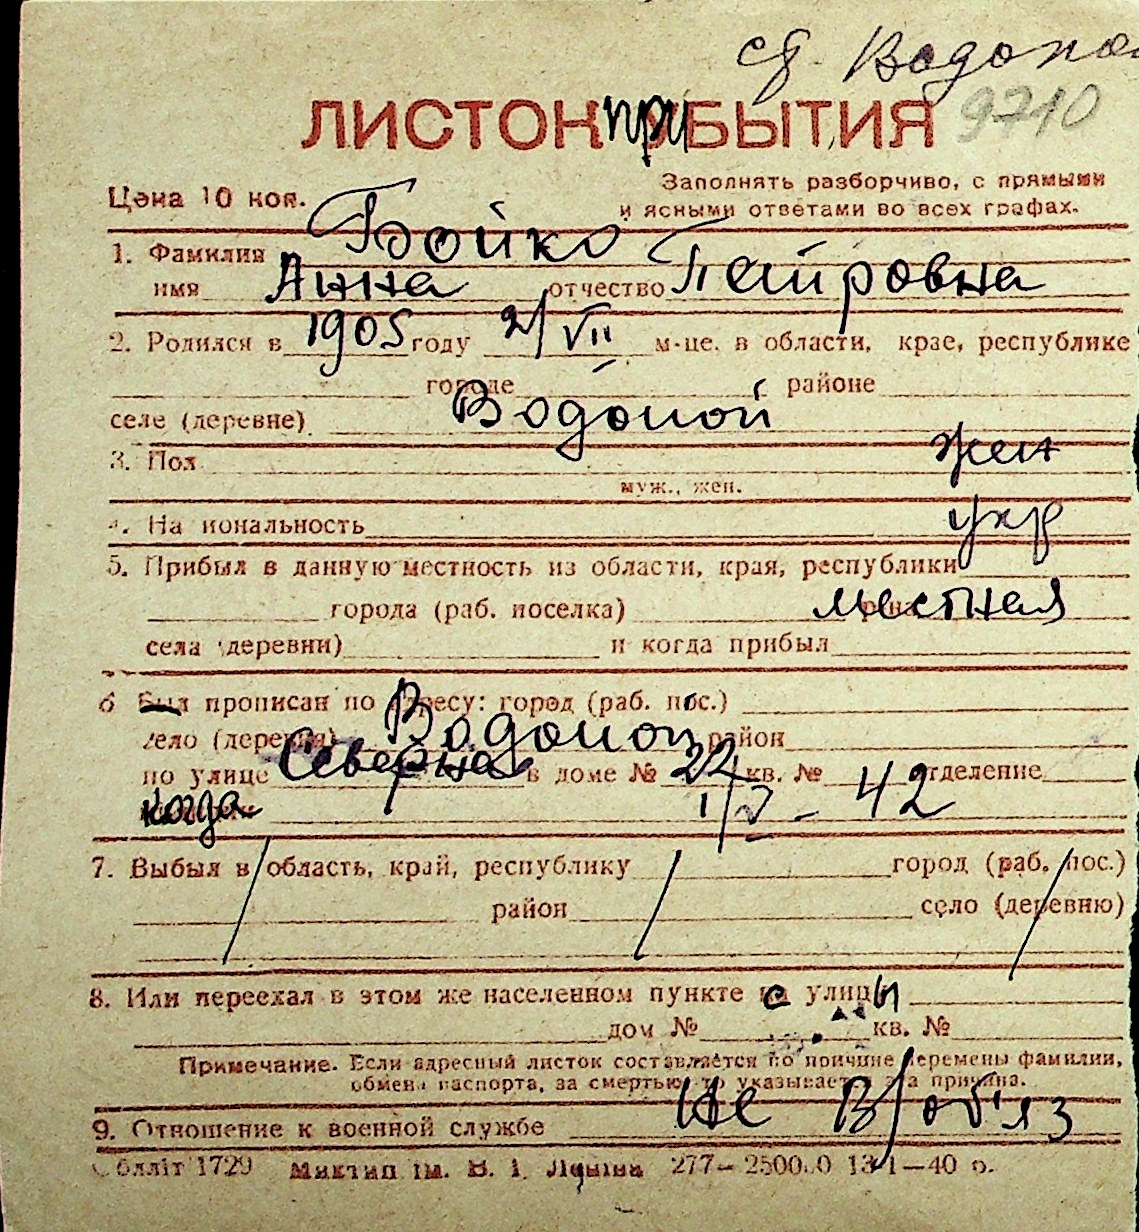 с. Водопой
ЛИСТОК при БЫТИЯ 9710
Цена 10 коп. Заполнять разборчиво, с прямыми
и ясными ответами во всех графах.
1. Фамилия Бойко
имя Анна отчество Петровна
2. Родился в 1905 году 2/VII м-це, в области, крае, республике
городе районе
селе (деревне) Водопой
3. Пол жен
муж., жен.
4. На иональность укр
5. Прибыл в данную местность из области, края, республики
города (раб. поселка) местная
села (деревни) и когда прибыл
6 Был прописан по адресу: город (раб. пос.)
село (деревня) Водопой район
по улице Северная в доме № 22 кв. № отделение
когда 1/V - 42
7. Выбыл в область, край, республику город (раб. пос.)
район село (деревню)
8. Или переехал в этом же населенном пункте с улицы
дом № кв. №
Примечание. Если адресный листок составляется по причине перемены фамилии,
обмена паспорта, за смертью, то указывается эта причина.
9. Отношение к военной службе Не в/об'яз
блліт 1729 Миктип ім. В. І. Леніна 277— 13/I—40 р.